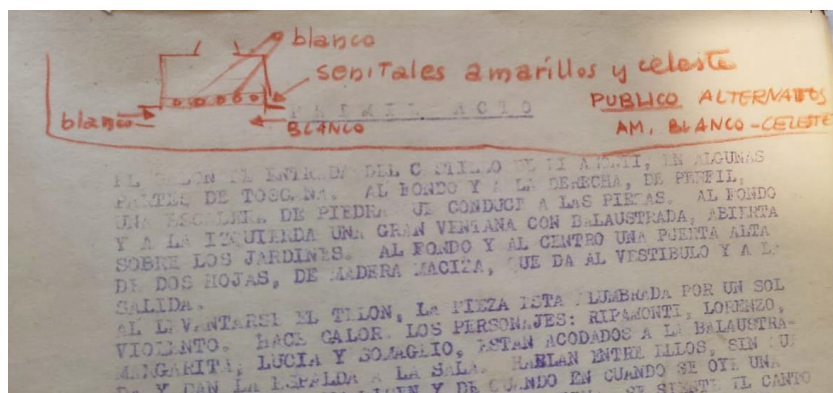 blanco
senitales amarillos y celeste
blanco
BLANCO
PRIMER ACTO
PUBLICO ALTERNADOS
AM. BLANCO-CELESTE
EL SALON DE ENTRADA DEL CASTILLO DE, EN ALGUNAS
PARTES DE TOSCANA. AL FONDO Y A LA DERECHA, DE PERFIL,
UNA ESCALERA DE PIEDRA QUE CONDUCE A LAS PIEZAS. AL FONDO
Y A LA IZQUIERDA UNA GRAN VENTANA CON BALAUSTRADA, ABIERTA
SOBRE LOS JARDINES. AL FONDO Y AL CENTRO UNA PUERTA ALTA
DE DOS HOJAS, DE MADERA MACIZA, QUE DA AL VESTIBULO Y A LA
SALIDA.
AL LEVANTARSE EL TELON, LA PIEZA ESTA ALUMBRADA POR UN SOL
VIOLENTO. HACE CALOR. LOS PERSONAJES: RIPAMONTI, LORENZO,
MARGARITA, LUCIA Y SOMAGLIO, ESTAN ACODADOS A LA BALAUSTRA-
DA Y DAN LA ESPALDA A LA SALA. HABLAN ENTRE ELLOS, SIN QUE
Y DE CUANDO EN CUANDO SE OYE UNA
SE SIENTE EL CANTO